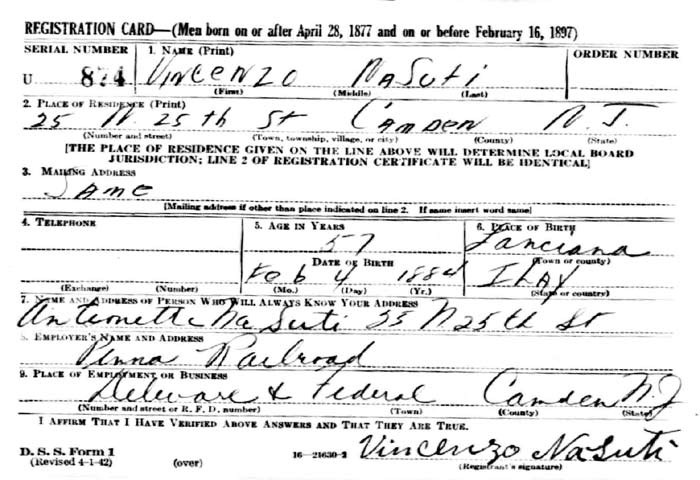 REGISTRATION CARD—(Men born on or after April 28, 1877 and on or before February 16, 1897)
SERIAL NUMBER 1. NAME (Print) ORDER NUMBER
U 874 VINCENZO NASUTi
(First) (Middle) (Last)
2. PLACE OF RESIDENCE (Print)
25 N. 25th St CAMDEN N.J.
(Number and street) (Town, township, village, or city) (County) (State)
[THE PLACE OF RESIDENCE GIVEN ON THE LINE ABOVE WILL DETERMINE LOCAL BOARD
JURISDICTION; LINE 2 OF REGISTRATION CERTIFICATE WILL BE IDENTICAL]
3. MAILING ADDRESS
SAME
[Mailing address if other than place indicated on line 2. If same insert word same]
4. TELEPHONE 5. AGE IN YEARS 6. PLACE OF BIRTH
57 Lanciana
DATE OF BIRTH (Town or county)
Feb 4 1884 ITLAY
(Exchange) (Number) (Mo.) (Day) (Yr.) (State or country)
7. NAME AND ADDRESS OF PERSON WHO WILL ALWAYS KNOW YOUR ADDRESS
Antionette NaSuti N 25th St
8. EMPLOYER'S NAME AND ADDRESS
Penna Railroad
9. PLACE OF EMPLOYMENT OR BUSINESS
Deleware & Federal Camden N.J
(Number and street or R. F. D. number) (Town) (County) (State)
I AFFIRM THAT I HAVE VERIFIED ABOVE ANSWERS AND THAT THEY ARE TRUE.
D. S. S. Form 1 Vincenzo NaSuti
(Revised 4-1-42) (over) 16—21630-2 (Registrant's signature)